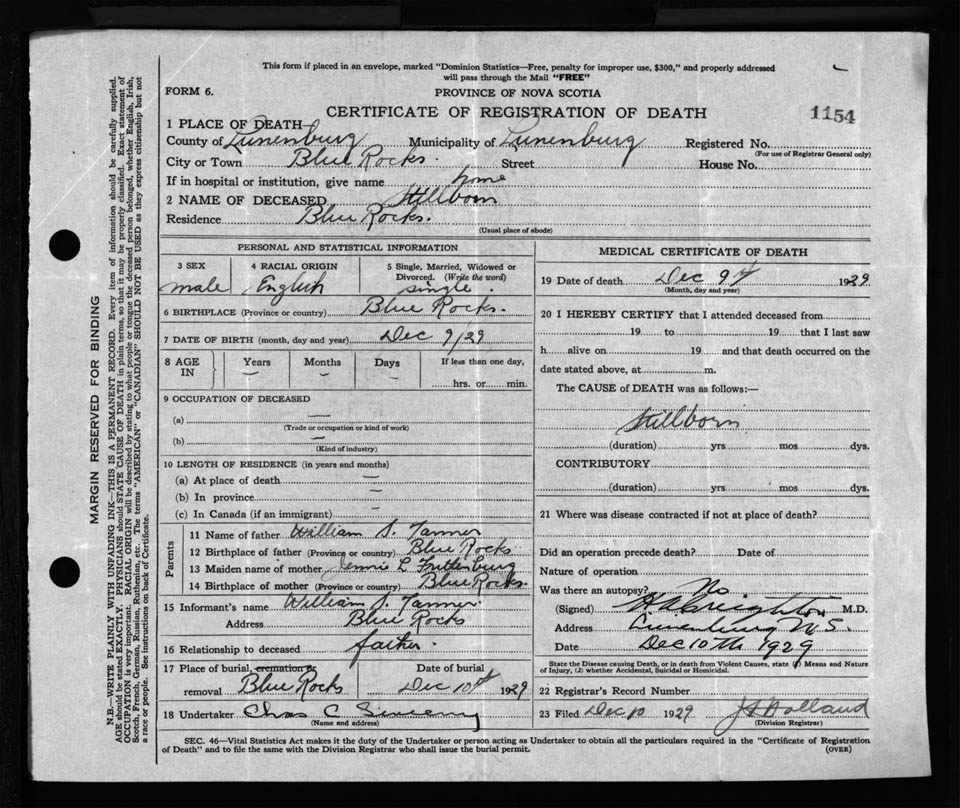 This form if placed in an envelope, marked "Dominion Statistics—Free, penalty for improper use, $300," and properly addressed
will pass through the Mail "FREE"
FORM 6.
PROVINCE OF NOVA SCOTIA
CERTIFICATE OF REGISTRATION OF DEATH
1154
1 PLACE OF DEATH
County of Lunenburg Municipality of Lunenburg Registered No.
(For use of Registrar General only)
City or Town Blue Rocks. Street House No.
If in hospital or institution, give name home
2 NAME OF DECEASED Stillborn
Residence Blue Rocks.
(Usual place of abode)
PERSONAL AND STATISTICAL INFORMATION
3 SEX 4 RACIAL ORIGIN 5 Single, Married, Widowed or
Divorced. (Write the word)
male English single.
6 BIRTHPLACE (Province or country) Blue Rocks.
7 DATE OF BIRTH (month, day and year) Dec 9/29
8 AGE IN Years Months Days If less than one day,
hrs. or min.
9 OCCUPATION OF DECEASED
(a) —
(Trade or occupation or kind of work)
(b) —
(Kind of industry)
10 LENGTH OF RESIDENCE (in years and months)
(a) At place of death —
(b) In province —
(c) In Canada (if an immigrant) —
Parents
11 Name of father William S. Tanner
12 Birthplace of father (Province or country) Blue Rocks
13 Maiden name of mother Jennie L
14 Birthplace of mother (Province or country) Blue Rocks.
15 Informant's name William S. Tanner.
Address Blue Rocks
16 Relationship to deceased father.
17 Place of burial, cremation or Date of burial
removal Blue Rocks Dec 10th 1929
18 Undertaker Chas C
(Name and address)
MEDICAL CERTIFICATE OF DEATH
19 Date of death Dec 9th 1929
(Month, day and year)
20 I HEREBY CERTIFY that I attended deceased from
19 to 19 that I last saw
h alive on 19 and that death occurred on the
date stated above, at m.
The CAUSE of DEATH was as follows:—
Stillborn
(duration) yrs mos dys.
CONTRIBUTORY
(duration) yrs mos dys.
21 Where was disease contracted if not at place of death?
Did an operation precede death? Date of
Nature of operation
Was there an autopsy? No
(Signed) Creighton M.D.
Address Lunenburg N.S.
Date Dec 10th 1929
State the Disease causing Death, or in death from Violent Causes, state (1) Means and Nature
of Injury, (2) whether Accidental, Suicidal or Homicidal.
22 Registrar's Record Number
23 Filed Dec 10 1929 Holland
(Division Registrar)
SEC. 46—Vital Statistics Act makes it the duty of the Undertaker or person acting as Undertaker to obtain all the particulars required in the "Certificate of Registration
of Death" and to file the same with the Division Registrar who shall issue the burial permit.
(OVER)
MARGIN RESERVED FOR BINDING
N.B.—WRITE PLAINLY WITH UNFADING INK—THIS IS A PERMANENT RECORD. Every item of information should be carefully supplied.
AGE should be stated EXACTLY. PHYSICIANS should STATE CAUSE OF DEATH in plain terms, so that it may be properly classified. Exact statement of
OCCUPATION is very important. RACIAL ORIGIN will be described by stating to what people or tongue the deceased person belonged, whether English, Irish,
Scotch, French, German, Russian, Ruthenian, etc. The terms "AMERICAN" or "CANADIAN" SHOULD NOT BE USED as they express citizenship but not
a race or people. See instructions on back of Certificate.